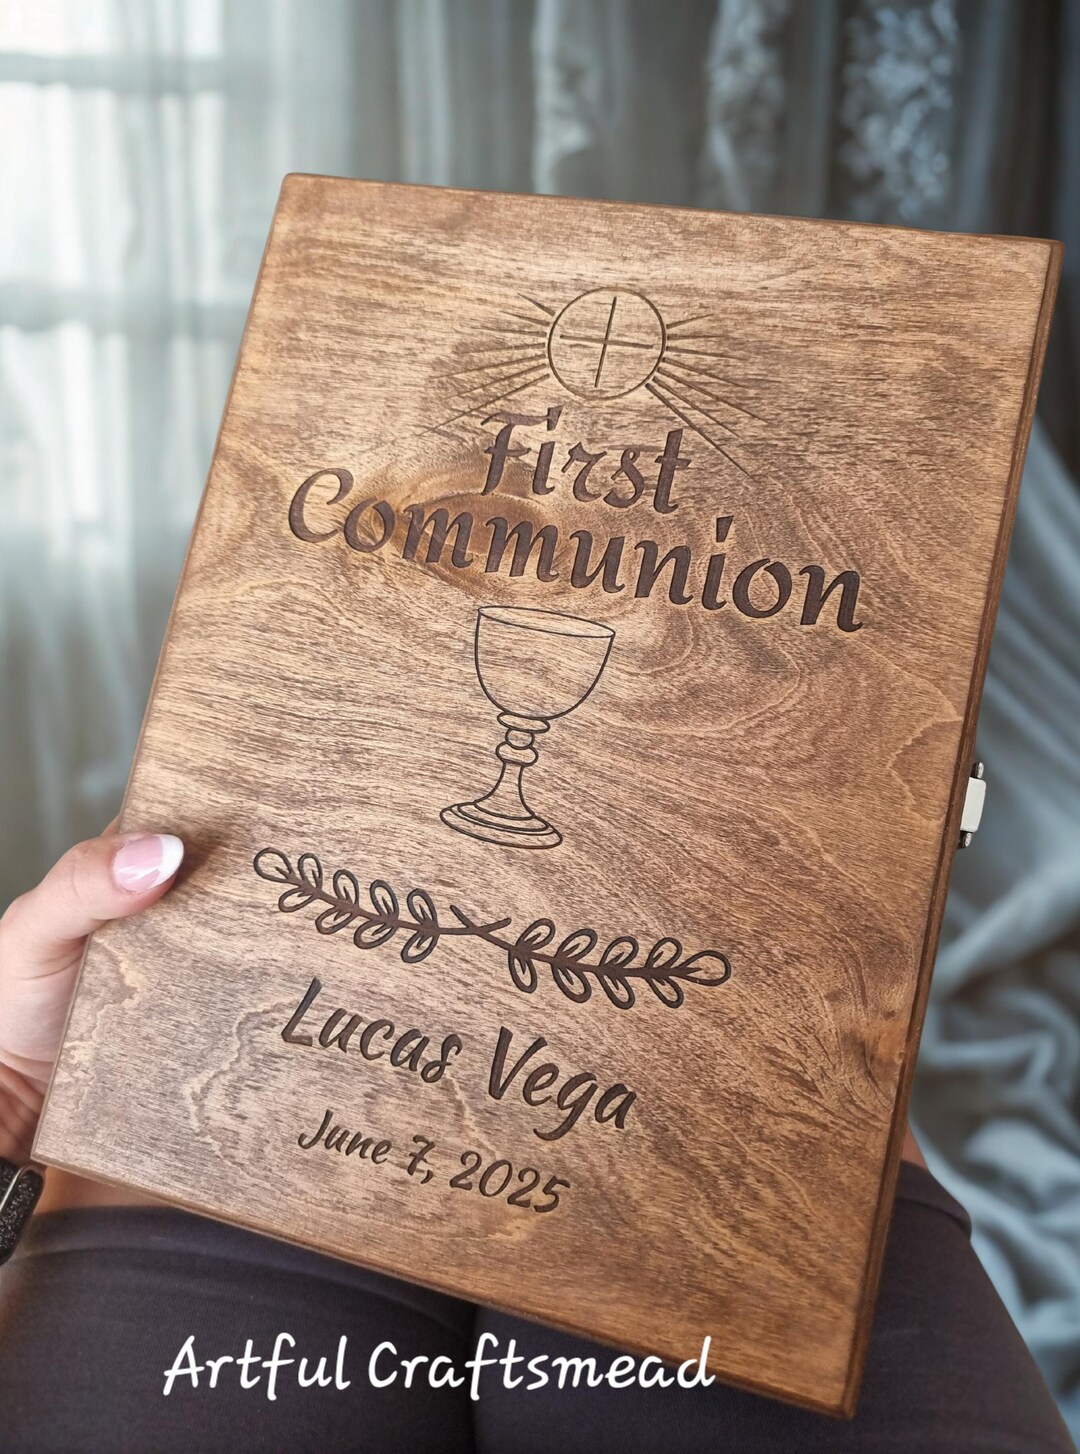 First
Communion
Lucas Vega
June 7, 2025
Artful Craftsmead